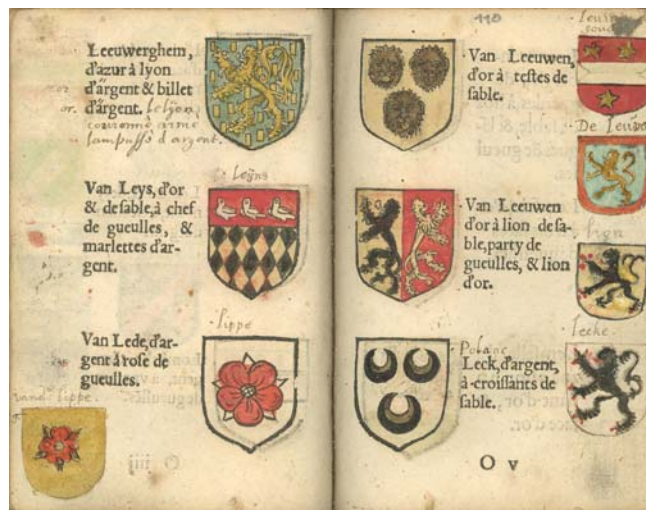 Leeuwerghem,
d'azur à lyon
d'argent & billet
d'argent. le lyon
or
or.
couronné armé
lampassé d'argent.
Leyns
Van Leys, d'or
& de sable, à chef
de gueulles, &
marlettes d'ar-
gent.
lippe
Van Lede, d'ar-
gent à rose de
gueulles.
vand. lippe.
110
Van Leeuwen,
d'or à testes de
sable.
De leuw
Van Leeuwen
d'or à lion de sa-
ble, party de
gueulles, & lion
d'or.
lign
Polane
Leck, d'argent,
à croissants de
sable.
lecke.
O v